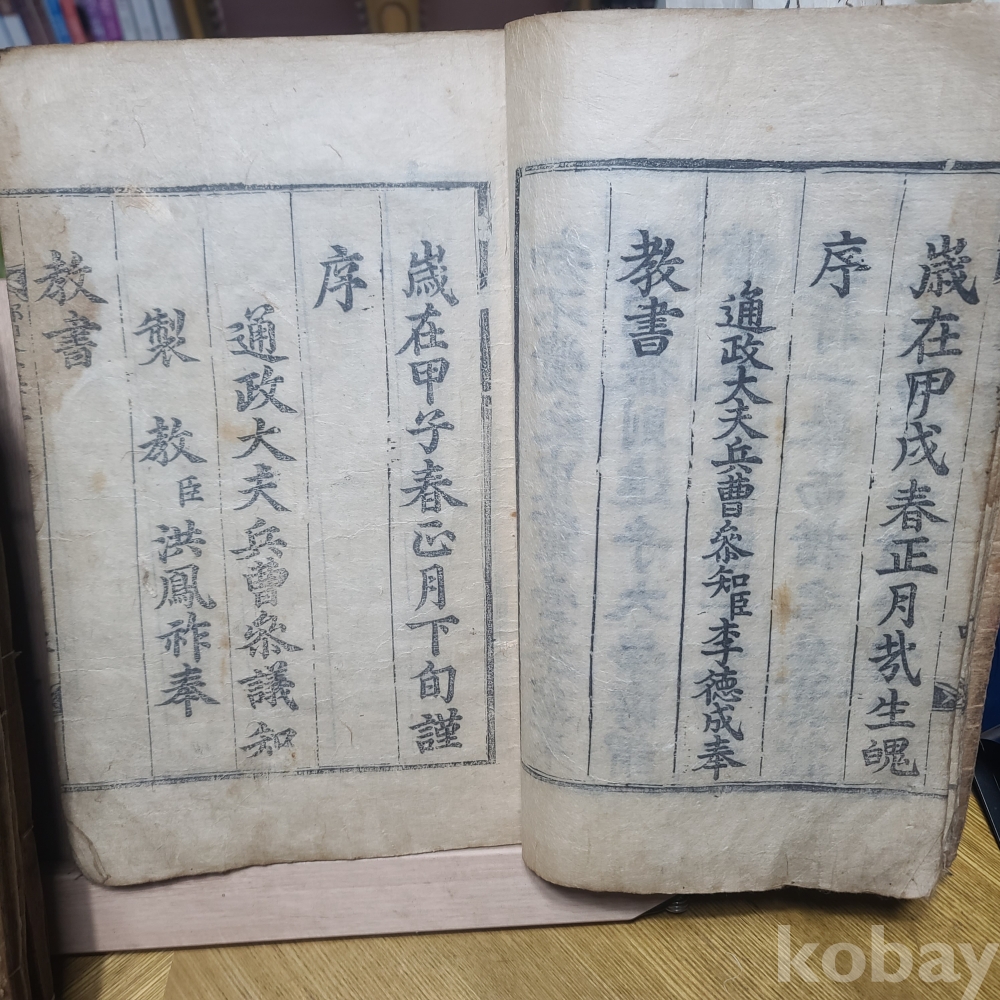 歲在甲戌春正月哉生魄
序
通政大夫兵曹叅知臣李德成奉
教書
歲在甲子春正月下旬謹
序
通政大夫兵曹叅議知
製 教臣洪鳳祚奉
教書
kobay